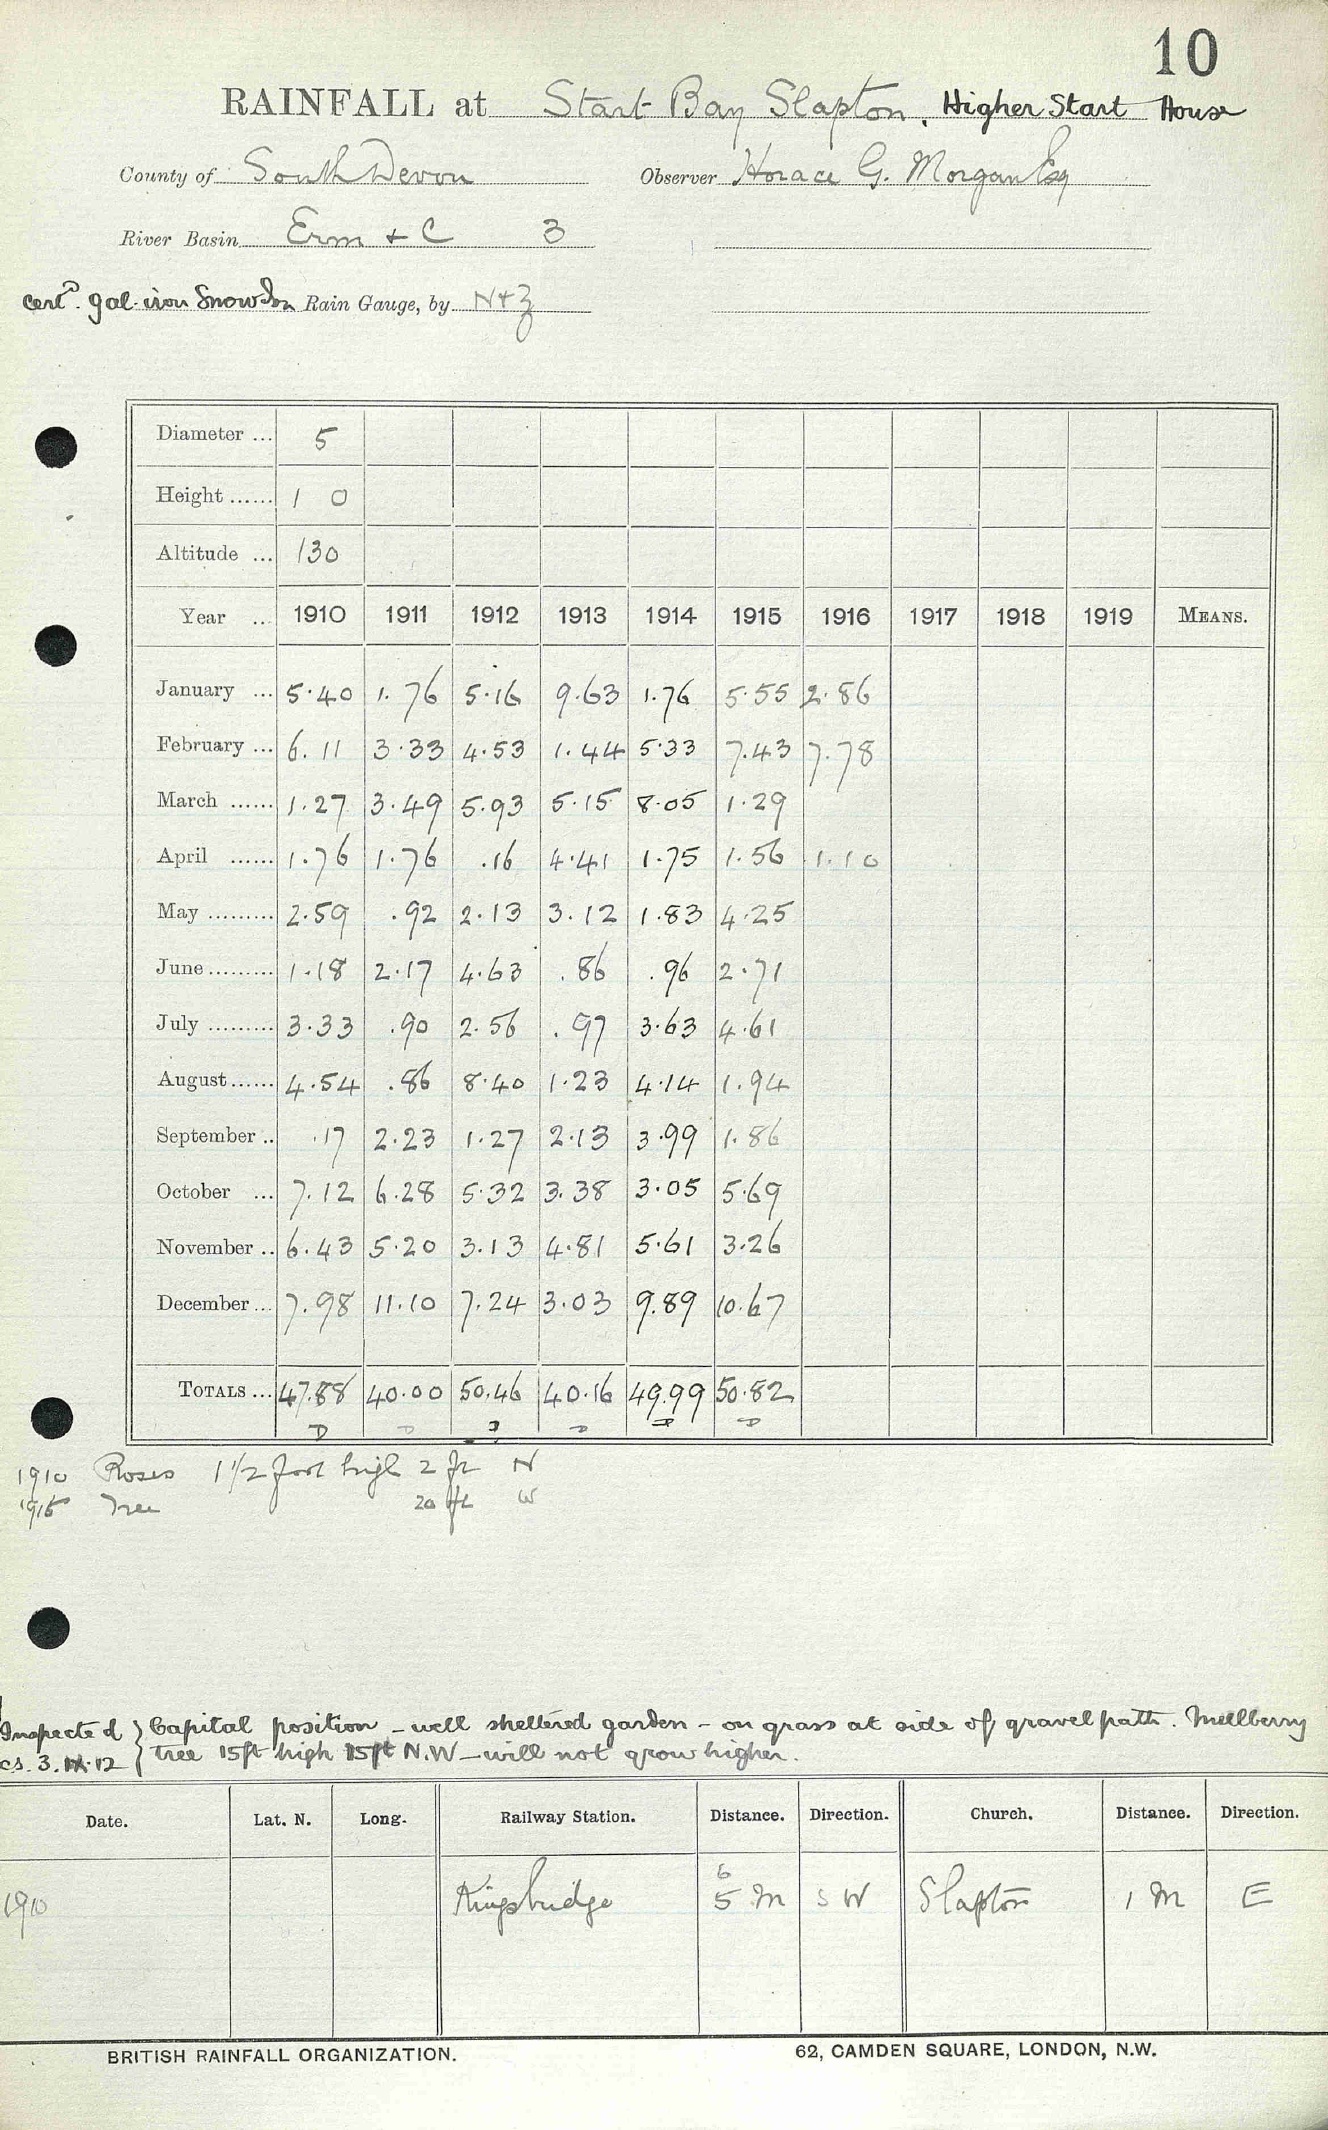 10
RAINFALL at Start Bay Slapton, Higher Start House
County of South Devon Observer Horace G. Morgan Esq
River Basin Erm + C 3
certd. gal. iron Snowdon Rain Gauge, by N+Z
Diameter ... 5
Height ...... 1 0
Altitude ... 130
Year ... 1910 1911 1912 1913 1914 1915 1916 1917 1918 1919 MEANS.
January ... 5.40 1.76 5.16 9.63 1.76 5.55 2.86
February ... 6.11 3.33 4.53 1.44 5.33 7.43 7.78
March ...... 1.27 3.49 5.93 5.15 8.05 1.29
April ...... 1.76 1.76 .16 4.41 1.75 1.56 1.10
May ......... 2.59 .92 2.13 3.12 1.83 4.25
June ......... 1.18 2.17 4.63 .86 .96 2.71
July ......... 3.33 .90 2.56 .97 3.63 4.61
August ...... 4.54 .86 8.40 1.23 4.14 1.94
September .. .17 2.23 1.27 2.13 3.99 1.86
October ... 7.12 6.28 5.32 3.38 3.05 5.69
November .. 6.43 5.20 3.13 4.81 5.61 3.26
December ... 7.98 11.10 7.24 3.03 9.89 10.67
TOTALS ... 47.88 40.00 50.46 40.16 49.99 50.82
D D D D D D
1910 Roses 1 1/2 foot high 2 ft N
1915 Tree 20 ft W
Inspected } Capital position - well sheltered garden - on grass at side of gravel path. Mullberry
cs. 3.IX.12 } tree 15ft high 15ft N.W - will not grow higher.
Date. Lat. N. Long. Railway Station. Distance. Direction. Church. Distance. Direction.
6
1910 Kingsbridge 5 M S W Slapton 1 M E
BRITISH RAINFALL ORGANIZATION. 62, CAMDEN SQUARE, LONDON, N.W.